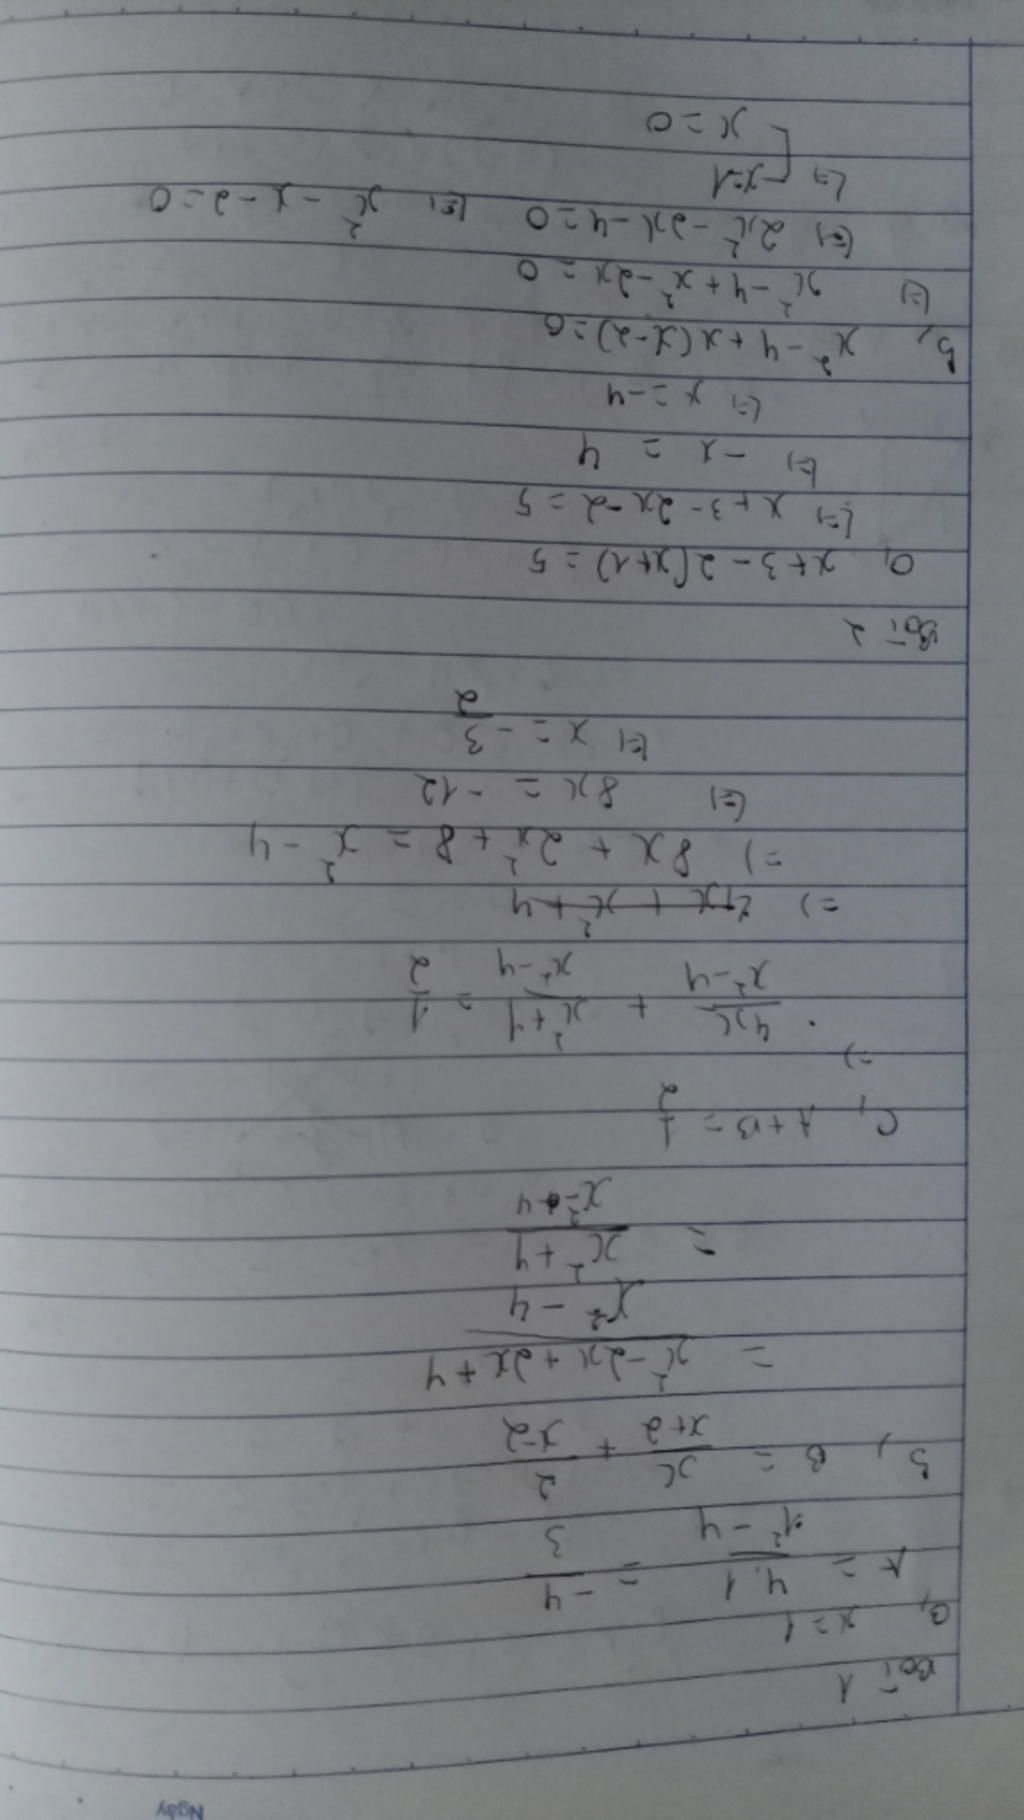 Ngày
Bài 1
a, x = 1
A = \frac{4.1}{1^2 - 4} = \frac{-4}{3}
b, B = \frac{x}{x+2} + \frac{2}{x-2}
= \frac{x^2 - 2x + 2x + 4}{x^2 - 4}
= \frac{x^2 + 4}{x^2 - 4}
C, A + B = \frac{1}{2}
=> \frac{4x}{x^2 - 4} + \frac{x^2 + 4}{x^2 - 4} = \frac{1}{2}
=> 4x + x^2 + 4
=> 8x + 2x^2 + 8 = x^2 - 4
<=> 8x = -12
<=> x = -\frac{3}{2}
Bài 2
a, x + 3 - 2(x + 1) = 5
<=> x + 3 - 2x - 2 = 5
<=> -x = 4
<=> x = -4
b, x^2 - 4 + x(x - 2) = 0
<=> x^2 - 4 + x^2 - 2x = 0
<=> 2x^2 - 2x - 4 = 0 <=> x^2 - x - 2 = 0
<=> [ x = 1
x = 0